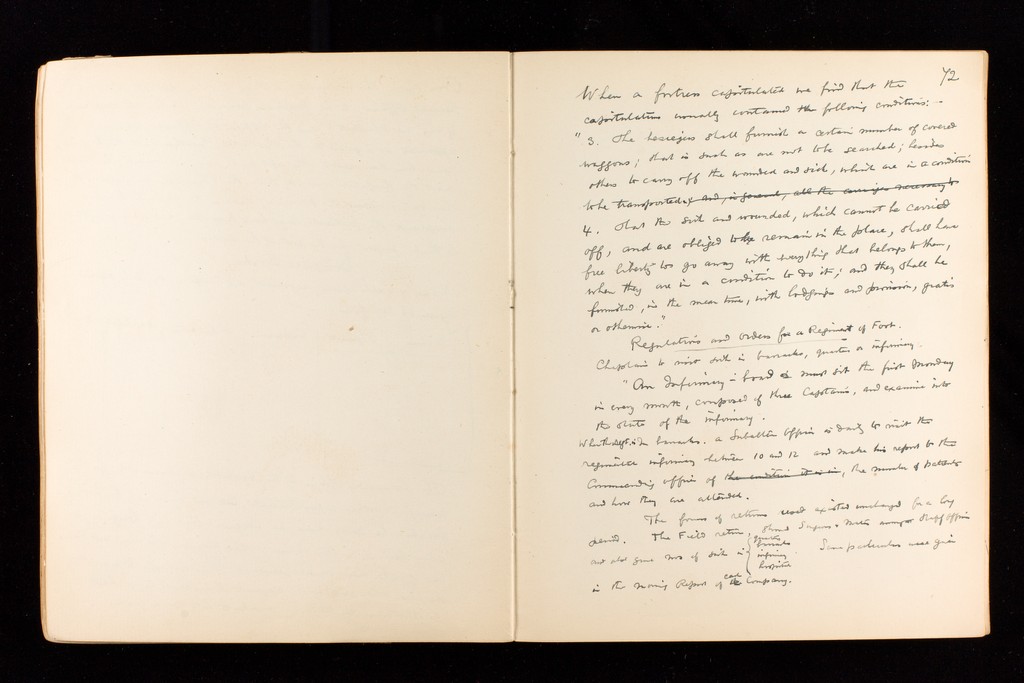 72
When a fortress capitulated we find that the
capitulation usually contained the following conditions: -
"3. The besiegers shall furnish a certain number of covered
waggons; that is such as are not to be searched; besides
others to carry off the wounded and sick, which are in a condition
to be transported, and, in general, all the carriages necessary to
4. That the sick and wounded, which cannot be carried
off, and are obliged to be remain in the place, shall have
free liberty to go away with everything that belongs to them,
when they are in a condition to do it; and they shall be
furnished, in the mean time, with lodgings and provision, gratis
or otherwise."
Regulations and orders for a Regiment of Foot.
Chaplain to visit sick in barracks, quarters or infirmary.
"An Infirmary board is must sit the first Monday
in every month, composed of three Captains, and examine into
the state of the infirmary.
When the Regt. is in barracks. a Subaltern Officer is daily to visit the
regimental infirmary between 10 and 12 and make his report to the
Commanding officer of the condition it is in, the number of patients
and how they are attended.
The forms of returns used existed unchanged for a long
period. The Field return showed Surgeon & Mates amongst Staff officers
and also gave nos of sick in quarters
barracks
infirmary
hospital
Same particulars were given
in the morning Report of the each Company.